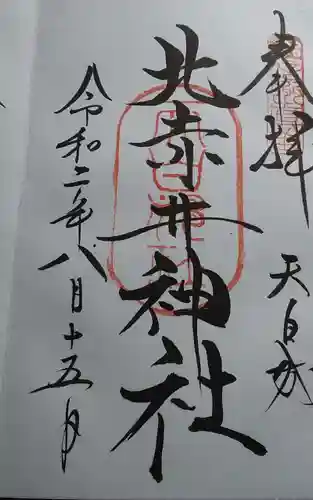 奉拝
天白城
北素井神社
令和二年八月十五日